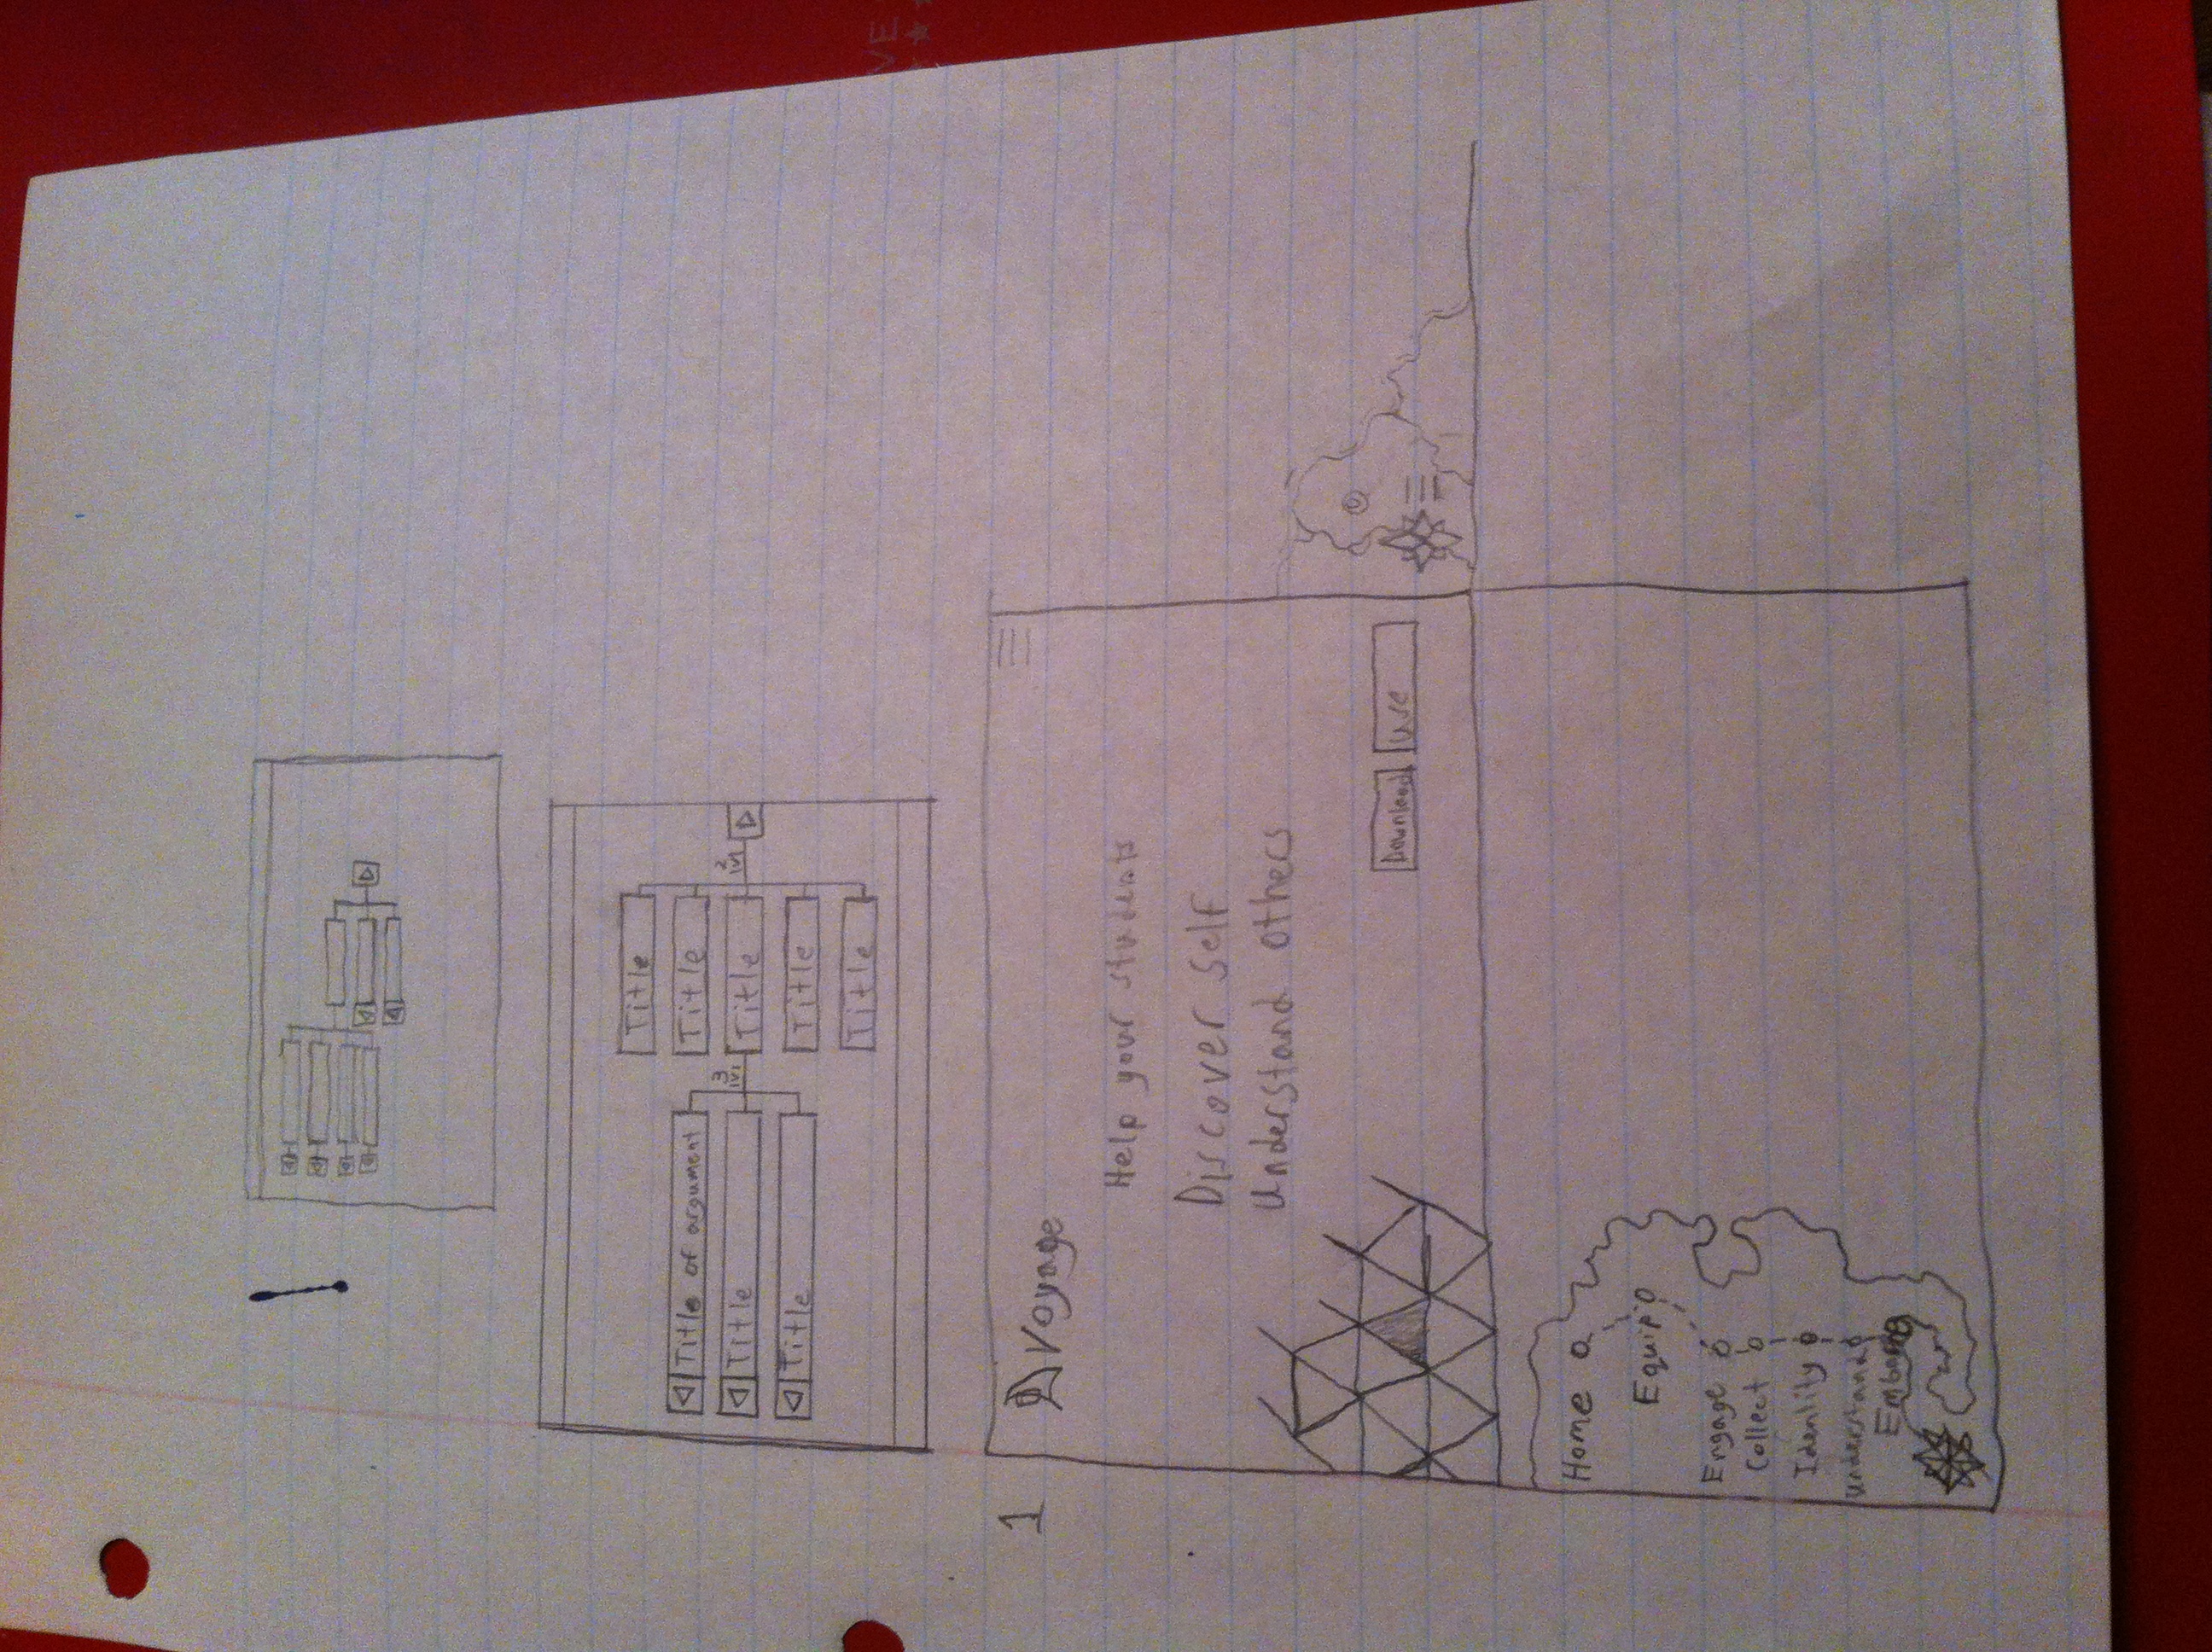 Title
Title of argument
Title
3
lvl
2
lvl
Title
Title
Title
Title
Title
1
Voyage
Help your students
Discover self
Understand others
Download
Use
Home
Equip
Engage
Collect
Identity
Understand
VE